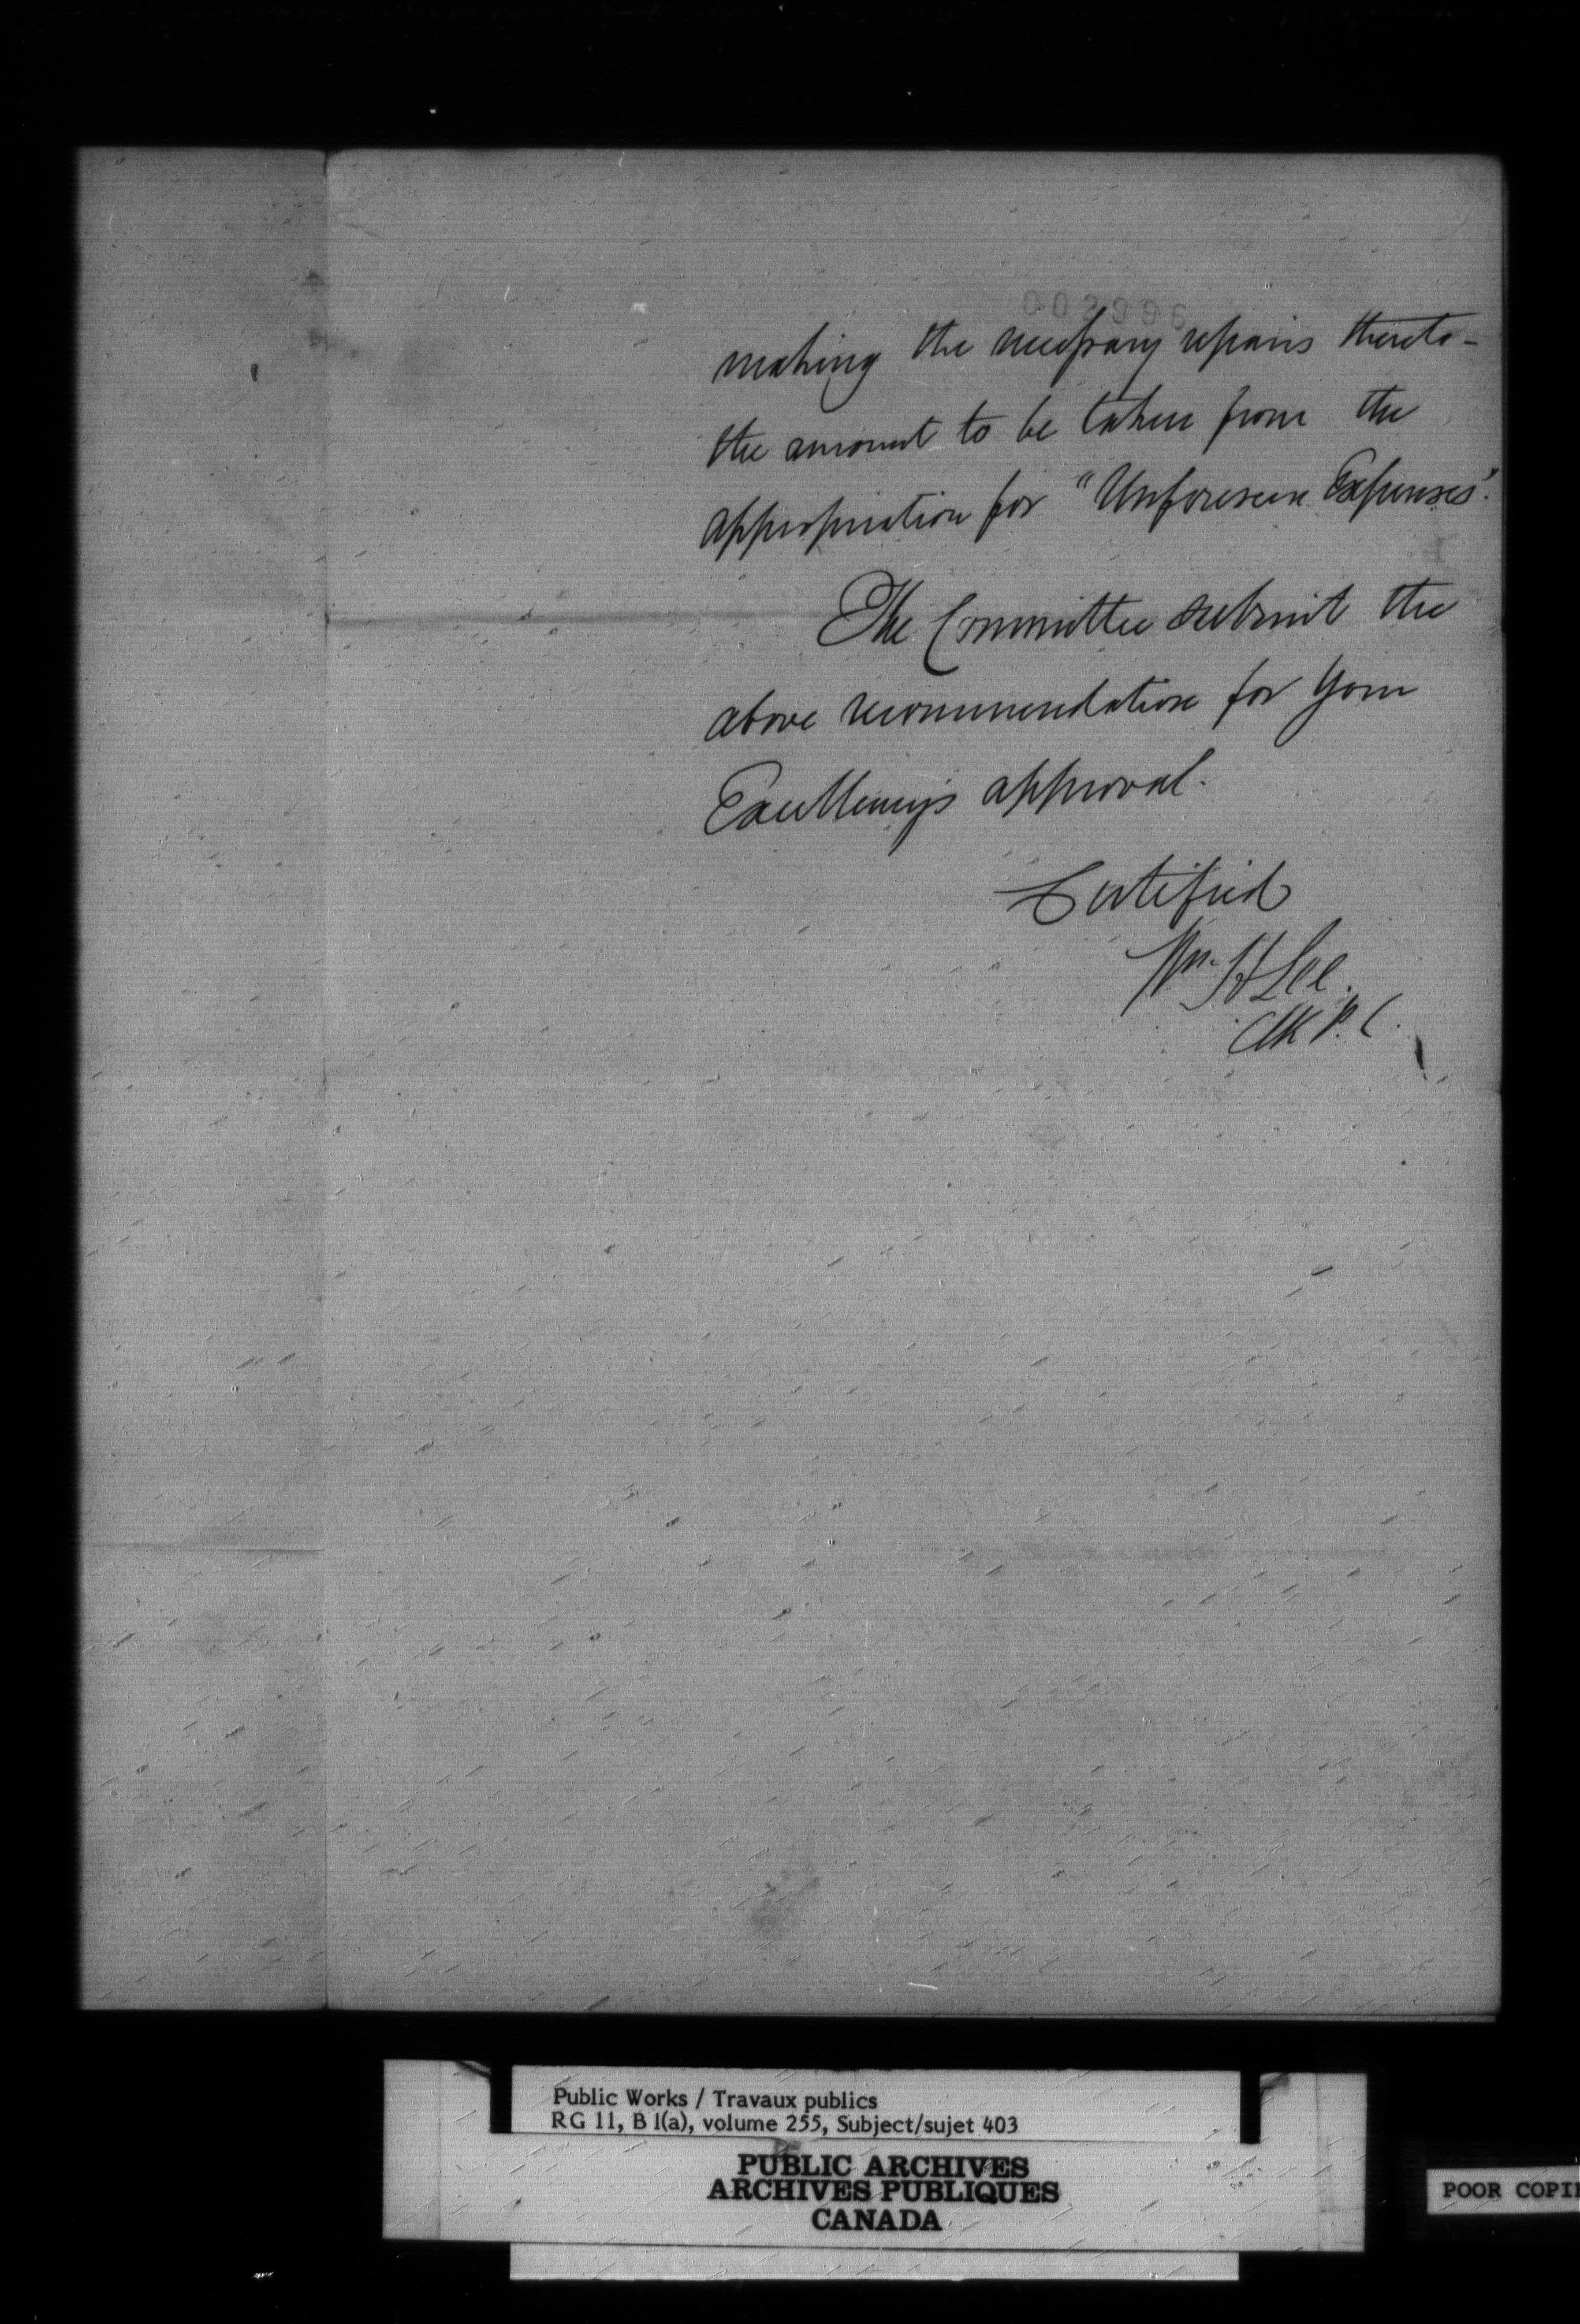 002996
making the necessary repairs thereto-
the amount to be taken from the
appropriation for "Unforeseen Expenses".
The Committee submit the
above recommendation for Your
Excellency's approval.
Certified
Wm. H Lee.
Clk P. C.
Public Works / Travaux publics
RG 11, B 1(a), volume 255, Subject/sujet 403
PUBLIC ARCHIVES
ARCHIVES PUBLIQUES
CANADA
POOR COPI